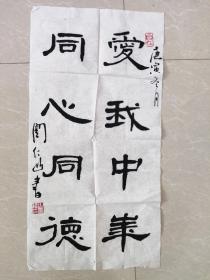 庚寅冬月
愛我中華
同心同德
阎仁山書